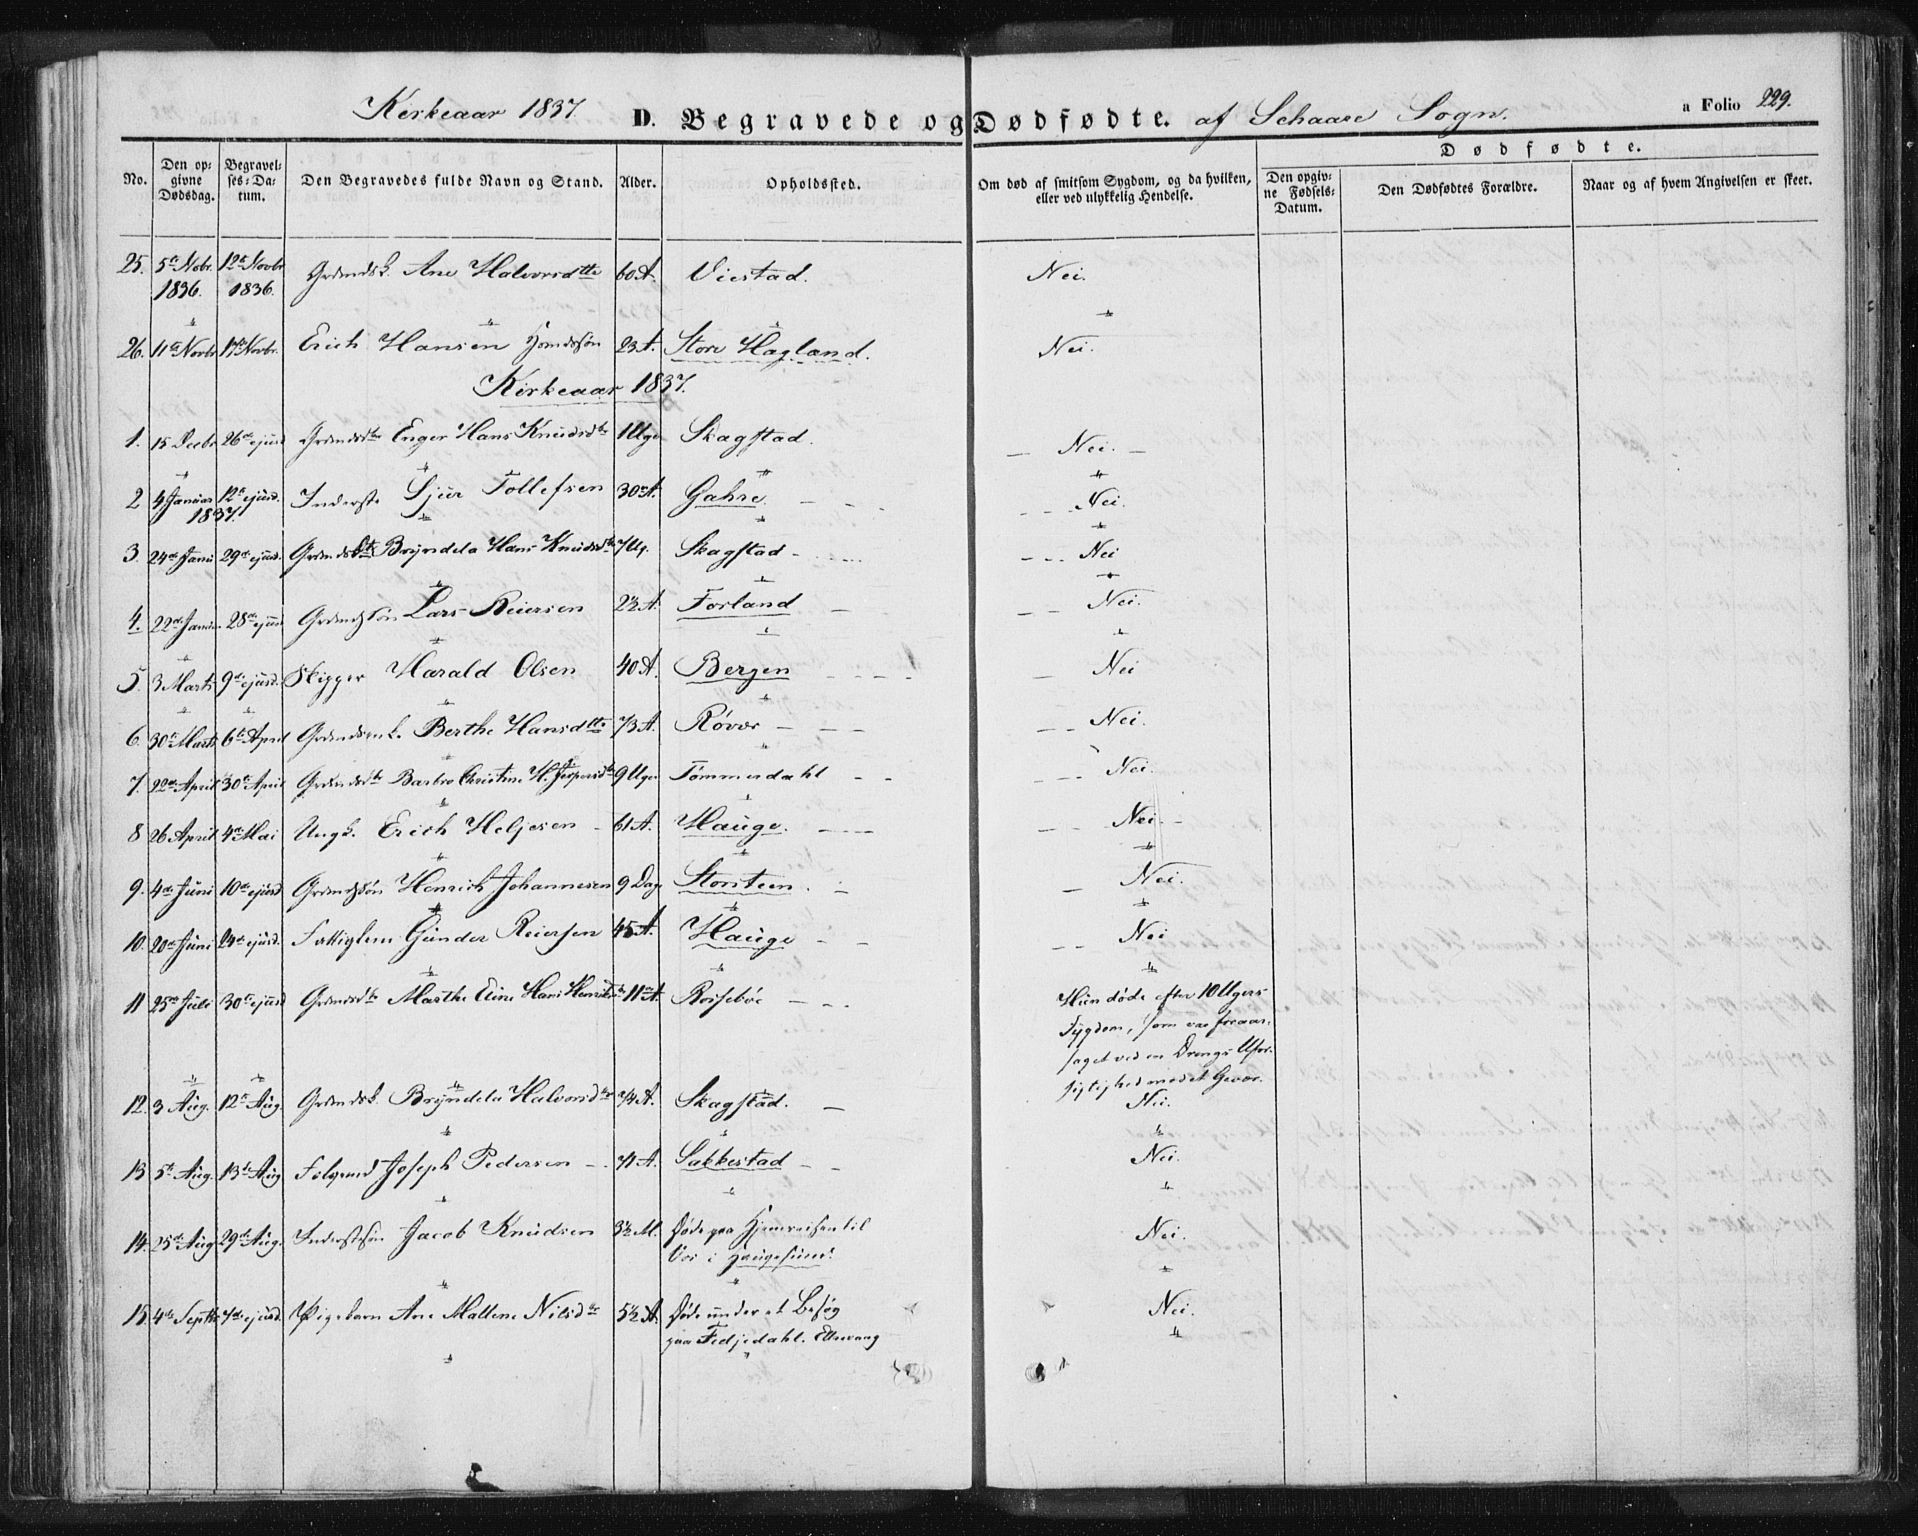 Kirkeaar 1837. D. Begravede og Dødfødte. af Schaare Sogn. a Folio 229.
Dødfødte.
No. Den opgivne Dødsdag. Begravelses-Datum. Den Begravedes fulde Navn og Stand. Alder. Opholdssted. Om død af smitsom Sygdom, og da hvilken, eller ved ulykkelig Hendelse. Den opgivne Fødsels-Datum. Den Dødfødtes Forældre. Naar og af hvem Angivelsen er skeet.
25. 5te Nobr. 1836. 12te Novbr 1836. Grdmdsk. Ane Halvorsdtte 60 A. Viestad. Nei.
26. 11te Novbr 17de Novbr. Erich Hansen 23 A. Store Hagland. Nei.
Kirkeaar 1837.
1. 15 Decbr 26de ejusd Enger Hans Knudsdtr 1 Uge Skagstad. Nei.
2 4 Januar 1837. 12te ejusd. Inderste Sjur Tollefsen 30 A. Gahre. Nei.
3. 24de Janu 29de ejusd. Bryndela Hans Knudsdtr 7 Ug. Skagstad Nei
4. 22de Janu 28de ejusd Lars Reiersen 2½ A. Forland Nei.
5. 3 Marts 9de ejusd. Skipper Harald Olsen 40 A. Bergen Nei
6. 30te Marts 6te April Grdmdsenk. Berthe Hansdtte 73 A. Røvær Nei.
7. 22de April 30te April Barbro Christine H. Jespersdtr 9 Uger Tømmerdahl Nei.
8 26 April 4de Mai Ungk. Erich Heljesen 61 A. Hauge. Nei.
9. 4de Juni 10de ejusd Henrich Johannesen 9 Dage Storsteen. Nei.
10. 20de Juni 24de ejusd. Fattiglem Gunder Reiersen 45 A. Hauge Nei
11 25de Juli 30te ejusd Marthe Eline Hans Henriks 11 A. Rossebøe Hun døde efter 10 Ugers
Sygdom, som var foraar-
saget ved en Drengs Ufor-
sigtighed med et Gevær.
12. 3 Aug. 12te Aug. Grdmdsk. Bryndela Halvorsdtr 74 A. Skagstad. Nei.
13 5te Aug. 13de Aug Folgemd Joseph Pedersen 71 A. Sakkestad Nei.
14. 25de Aug 29de Aug. Inderstesøn Jacob Knudsen 3½ M. Døde paa Hjemreisen til
Vos i Haugesund. Nei.
15. 4de Septbr 7de ejusd. Pigebarn Ane Mallene Nilsdtr 5½ A. Døde under et Besøg
paa Fedjedahl. Nei.